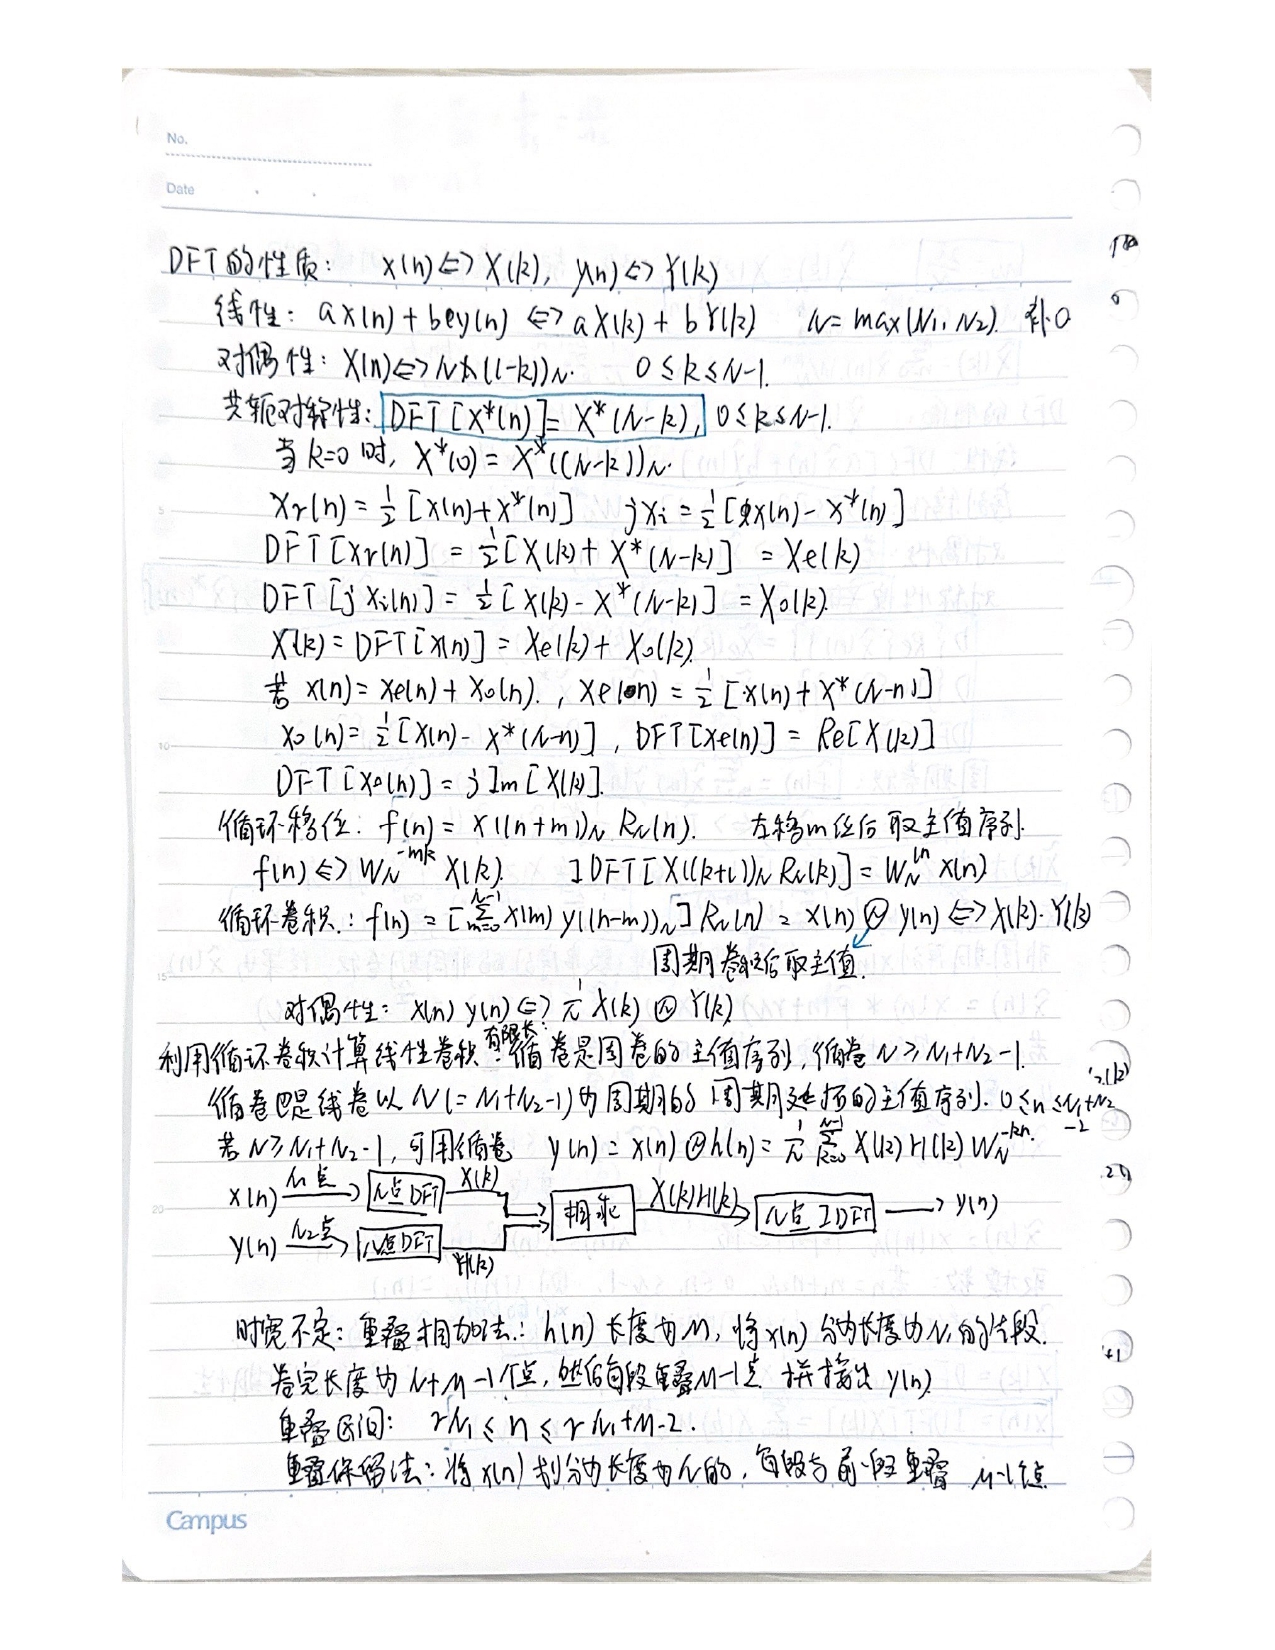 No.
Date
DFT的性质: x(n)⇔X(k), y(n)⇔Y(k)
线性: ax(n)+by(n)⇔aX(k)+bY(k) N=max(N1, N2). 补0
对偶性: X(n)⇔Nx((-k))N. 0≤k≤N-1.
共轭对称性: DFT[x*(n)]=X*(N-k), 0≤k≤N-1.
当k=0时, X*(0)=X*((N-k))N.
xr(n)=1/2[x(n)+x*(n)] jxi=1/2[x(n)-x*(n)]
DFT[xr(n)]=1/2[X(k)+X*(N-k)]=Xe(k)
DFT[jxi(n)]=1/2[X(k)-X*(N-k)]=Xo(k).
X(k)=DFT[x(n)]=Xe(k)+Xo(k).
若x(n)=xe(n)+xo(n)., xe(n)=1/2[x(n)+x*(N-n)]
xo(n)=1/2[x(n)-x*(N-n)], DFT[xe(n)]=Re[X(k)]
DFT[xo(n)]=jIm[X(k)].
循环移位: f(n)=x((n+m))N RN(n). 左移m位后取主值序列.
f(n)⇔WN^-mk X(k). IDFT[X((k+l))N RN(k)]=WN^ln x(n)
循环卷积: f(n)=[∑(m=0→N-1) x(m)y((n-m))N]RN(n)=x(n)Ⓝy(n)⇔X(k)·Y(k)
周期卷积后取主值.
对偶性: x(n)y(n)⇔1/N X(k)ⓃY(k)
利用循环卷积计算线性卷积: 有限长: 循卷是周卷的主值序列, 循卷N≥N1+N2-1.
循卷也是线卷以N(=N1+N2-1)为周期的周期延拓的主值序列. 0≤n≤N1+N2-2
若N≥N1+N2-1, 可用循卷 y(n)=x(n)Ⓝh(n)=1/N ∑(k=0→N-1) X(k)H(k)WN^-kn.
x(n) N1点→ N点DFT X(k) → 相乘 X(k)H(k) → N点IDFT → y(n)
y(n) N2点→ N点DFT H(k)
时宽不定: 重叠相加法: h(n)长度为M, 将x(n)分为长度为N1的片段.
卷完长度为N+M-1个点, 然后每段重叠M-1点 拼接出y(n)
重叠区间: rN1≤n≤rN1+M-2.
重叠保留法: 将x(n)划分为长度为N的, 每段与前一段重叠 M-1个点.
Campus